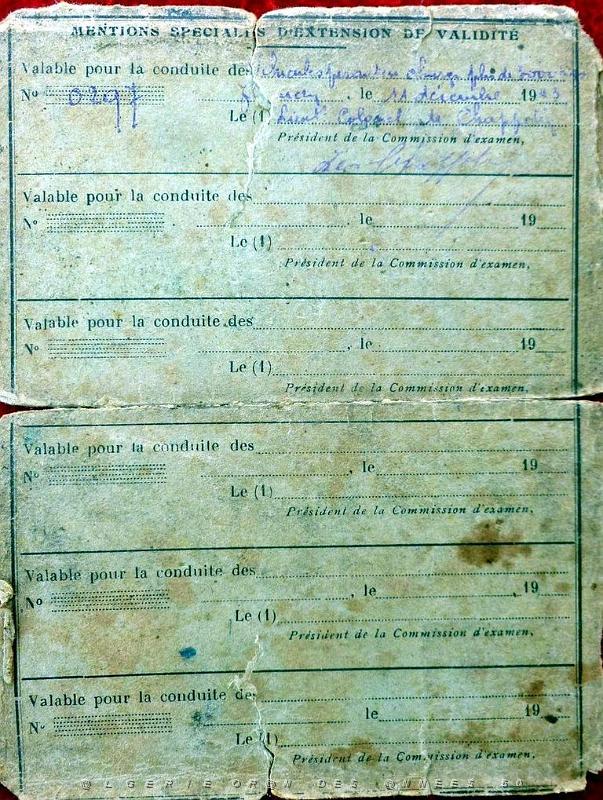 MENTIONS SPÉCIALES D'EXTENSION DE VALIDITÉ
Valable pour la conduite des de plus de 3000
No 0297 , le 11 décembre 1943
Le (1) Lieut Colonel de
Président de la Commission d'examen,
Valable pour la conduite des
No , le 19
Le (1)
Président de la Commission d'examen,
Valable pour la conduite des
No , le 19
Le (1)
Président de la Commission d'examen,
Valable pour la conduite des
No , le 19
Le (1)
Président de la Commission d'examen,
Valable pour la conduite des
No , le 19
Le (1)
Président de la Commission d'examen,
Valable pour la conduite des
No le 19
Le (1)
Président de la Commission d'examen,
@LGERIE_ORAN_DES_@NNEES_50